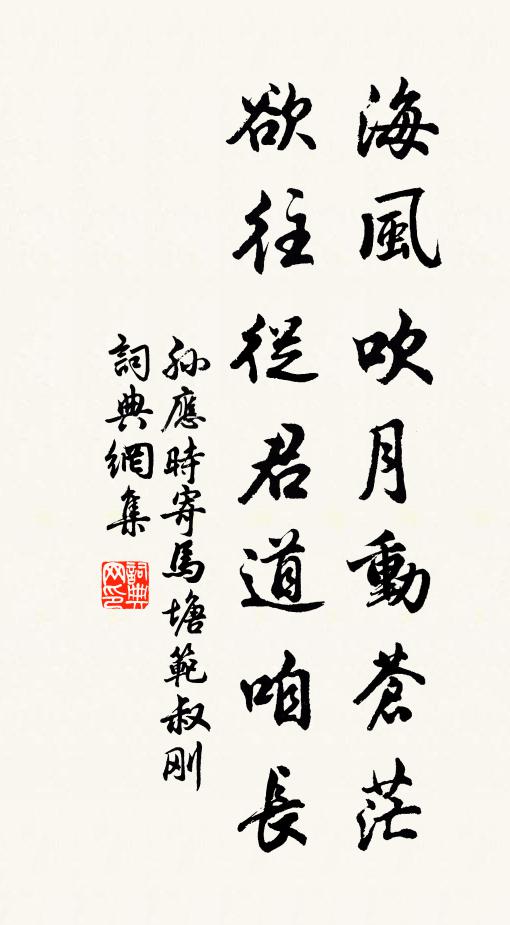 海風吹月動蒼茫
欲往從君道咱長
孫應時寄馬塘範叔刚
詞典網集
詞典网印